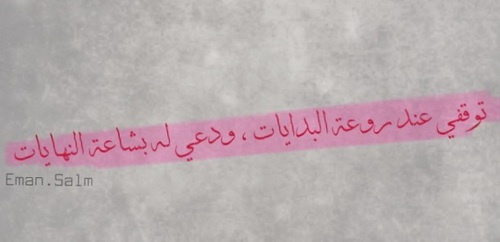 توقفي عند روعة البدايات ، ودعي له بشاعة النهايات
Eman.Salm